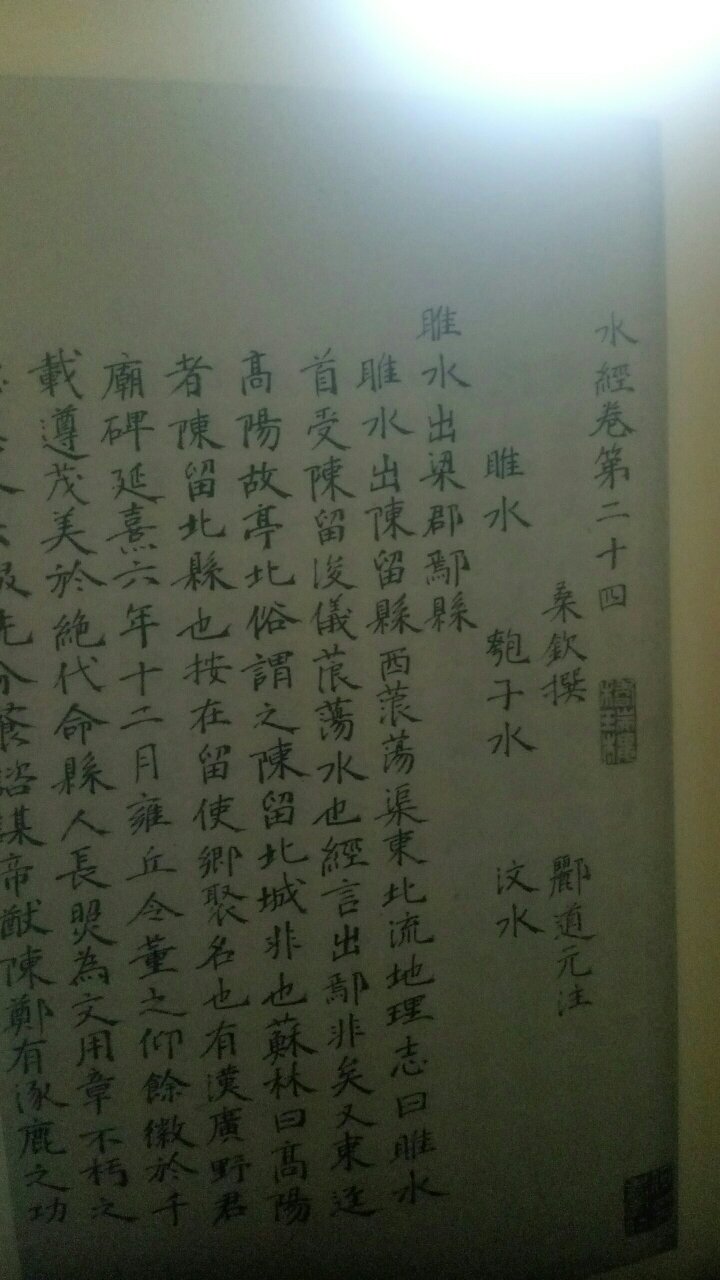 水經卷第二十四
桑欽撰 酈道元注
睢水 匏子水 汶水
睢水出梁郡鄢縣
睢水出陳留縣西蒗蕩渠東北流地理志曰睢水
首受陳留浚儀蒗蕩水也經言出鄢非矣又東逕
高陽故亭北俗謂之陳留北城非也蘇林曰高陽
者陳留北縣也按在留使鄉聚名也有漢廣野君
廟碑延熹六年十二月雍丘令董之仰餘徽於千
載遵茂美於絶代命縣人長照為文用章不朽之
先分 諮謀帝猷陳鄭有涿鹿之功